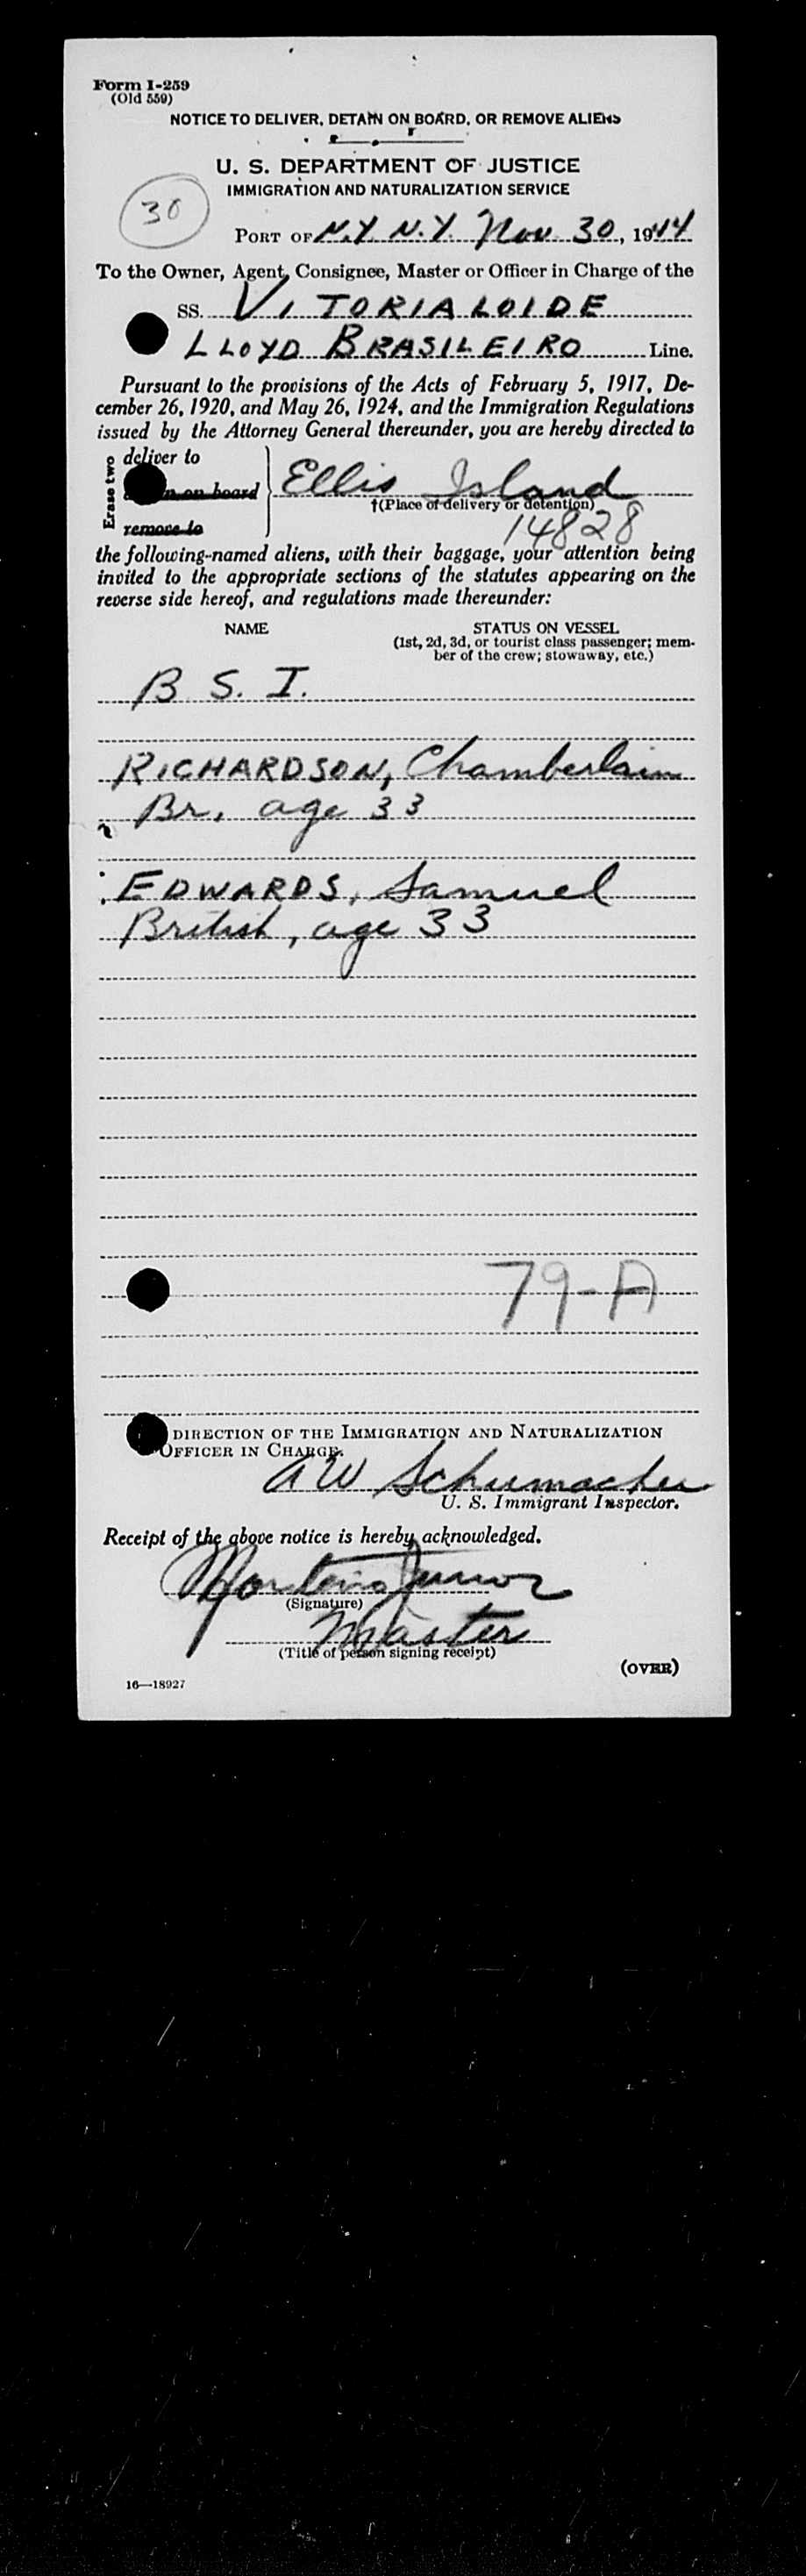 Form I-259
(Old 559)
NOTICE TO DELIVER, DETAIN ON BOARD, OR REMOVE ALIENS
U. S. DEPARTMENT OF JUSTICE
IMMIGRATION AND NATURALIZATION SERVICE
30
PORT OF N.Y. N.Y. Nov. 30, 1944
To the Owner, Agent, Consignee, Master or Officer in Charge of the
SS. VITORIALOIDE
LLOYD BRASILEIRO Line.
Pursuant to the provisions of the Acts of February 5, 1917, De-
cember 26, 1920, and May 26, 1924, and the Immigration Regulations
issued by the Attorney General thereunder, you are hereby directed to
Erase two
deliver to
n on board
remove to
Ellis Island
†(Place of delivery or detention)
14828
the following-named aliens, with their baggage, your attention being
invited to the appropriate sections of the statutes appearing on the
reverse side hereof, and regulations made thereunder:
NAME STATUS ON VESSEL
(1st, 2d, 3d, or tourist class passenger; mem-
ber of the crew; stowaway, etc.)
B. S. I.
RICHARDSON, Chamberlain
Br. age 33
EDWARDS, Samuel
British, age 33
79-A
DIRECTION OF THE IMMIGRATION AND NATURALIZATION
OFFICER IN CHARGE.
A W Schumacher
U. S. Immigrant Inspector.
Receipt of the above notice is hereby acknowledged.
Junior
(Signature)
Master
(Title of person signing receipt)
(OVER)
16—18927